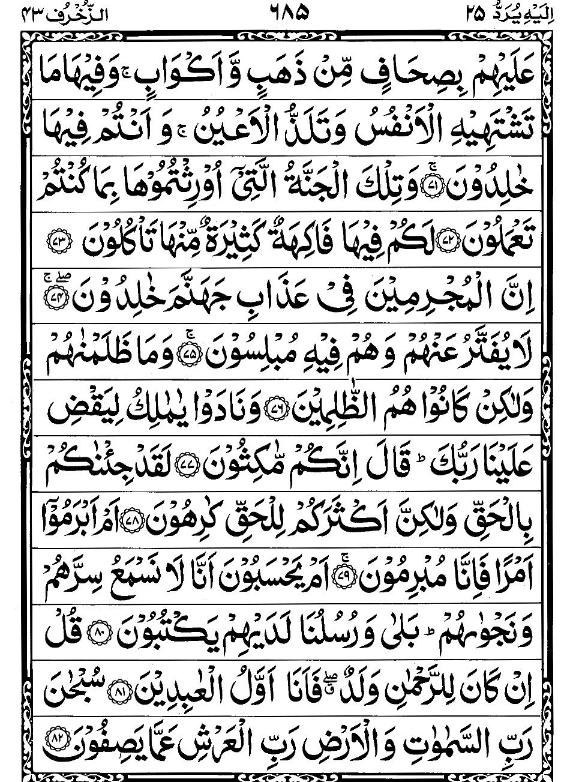 اِلَيْهِ يُرَدُّ ٢٥ ٦٨٥ الزُّخْرُف ٤٣
عَلَيْهِمْ بِصِحَافٍ مِّنْ ذَهَبٍ وَّاَكْوَابٍ ۚ وَفِيْهَا مَا
تَشْتَهِيْهِ الْاَنْفُسُ وَتَلَذُّ الْاَعْيُنُ ۚ وَاَنْتُمْ فِيْهَا
خٰلِدُوْنَ ۚ﴿۷۱﴾ وَتِلْكَ الْجَنَّةُ الَّتِيْۤ اُوْرِثْتُمُوْهَا بِمَا كُنْتُمْ
تَعْمَلُوْنَ ﴿۷۲﴾ لَكُمْ فِيْهَا فَاكِهَةٌ كَثِيْرَةٌ مِّنْهَا تَاْكُلُوْنَ ﴿۷۳﴾
اِنَّ الْمُجْرِمِيْنَ فِيْ عَذَابِ جَهَنَّمَ خٰلِدُوْنَ ۚۖ﴿۷۴﴾
لَا يُفَتَّرُ عَنْهُمْ وَهُمْ فِيْهِ مُبْلِسُوْنَ ۚ﴿۷۵﴾ وَمَا ظَلَمْنٰهُمْ
وَلٰكِنْ كَانُوْا هُمُ الظّٰلِمِيْنَ ﴿۷۶﴾ وَنَادَوْا يٰمٰلِكُ لِيَقْضِ
عَلَيْنَا رَبُّكَ ؕ قَالَ اِنَّكُمْ مّٰكِثُوْنَ ﴿۷۷﴾ لَقَدْ جِئْنٰكُمْ
بِالْحَقِّ وَلٰكِنَّ اَكْثَرَكُمْ لِلْحَقِّ كٰرِهُوْنَ ﴿۷۸﴾ اَمْ اَبْرَمُوْۤا
اَمْرًا فَاِنَّا مُبْرِمُوْنَ ۚ﴿۷۹﴾ اَمْ يَحْسَبُوْنَ اَنَّا لَا نَسْمَعُ سِرَّهُمْ
وَنَجْوٰىهُمْ ؕ بَلٰى وَرُسُلُنَا لَدَيْهِمْ يَكْتُبُوْنَ ﴿۸۰﴾ قُلْ
اِنْ كَانَ لِلرَّحْمٰنِ وَلَدٌ ۖۗ فَاَنَا اَوَّلُ الْعٰبِدِيْنَ ﴿۸۱﴾ سُبْحٰنَ
رَبِّ السَّمٰوٰتِ وَالْاَرْضِ رَبِّ الْعَرْشِ عَمَّا يَصِفُوْنَ ﴿۸۲﴾